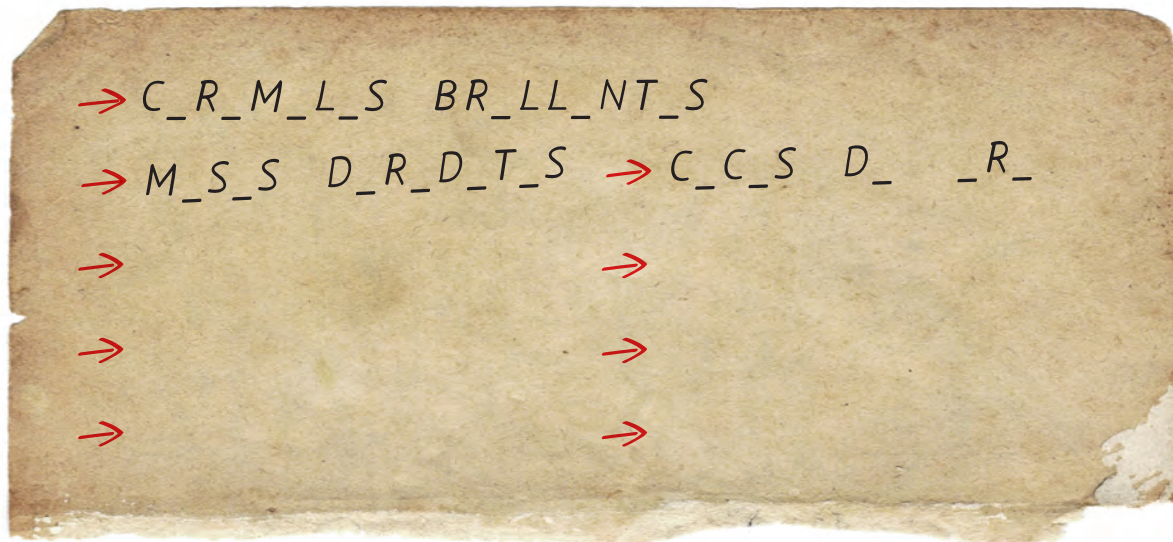 → C_R_M_L_S BR_LL_NT_S
→ M_S_S D_R_D_T_S → C_C_S D_ _R_
→ →
→ →
→ →